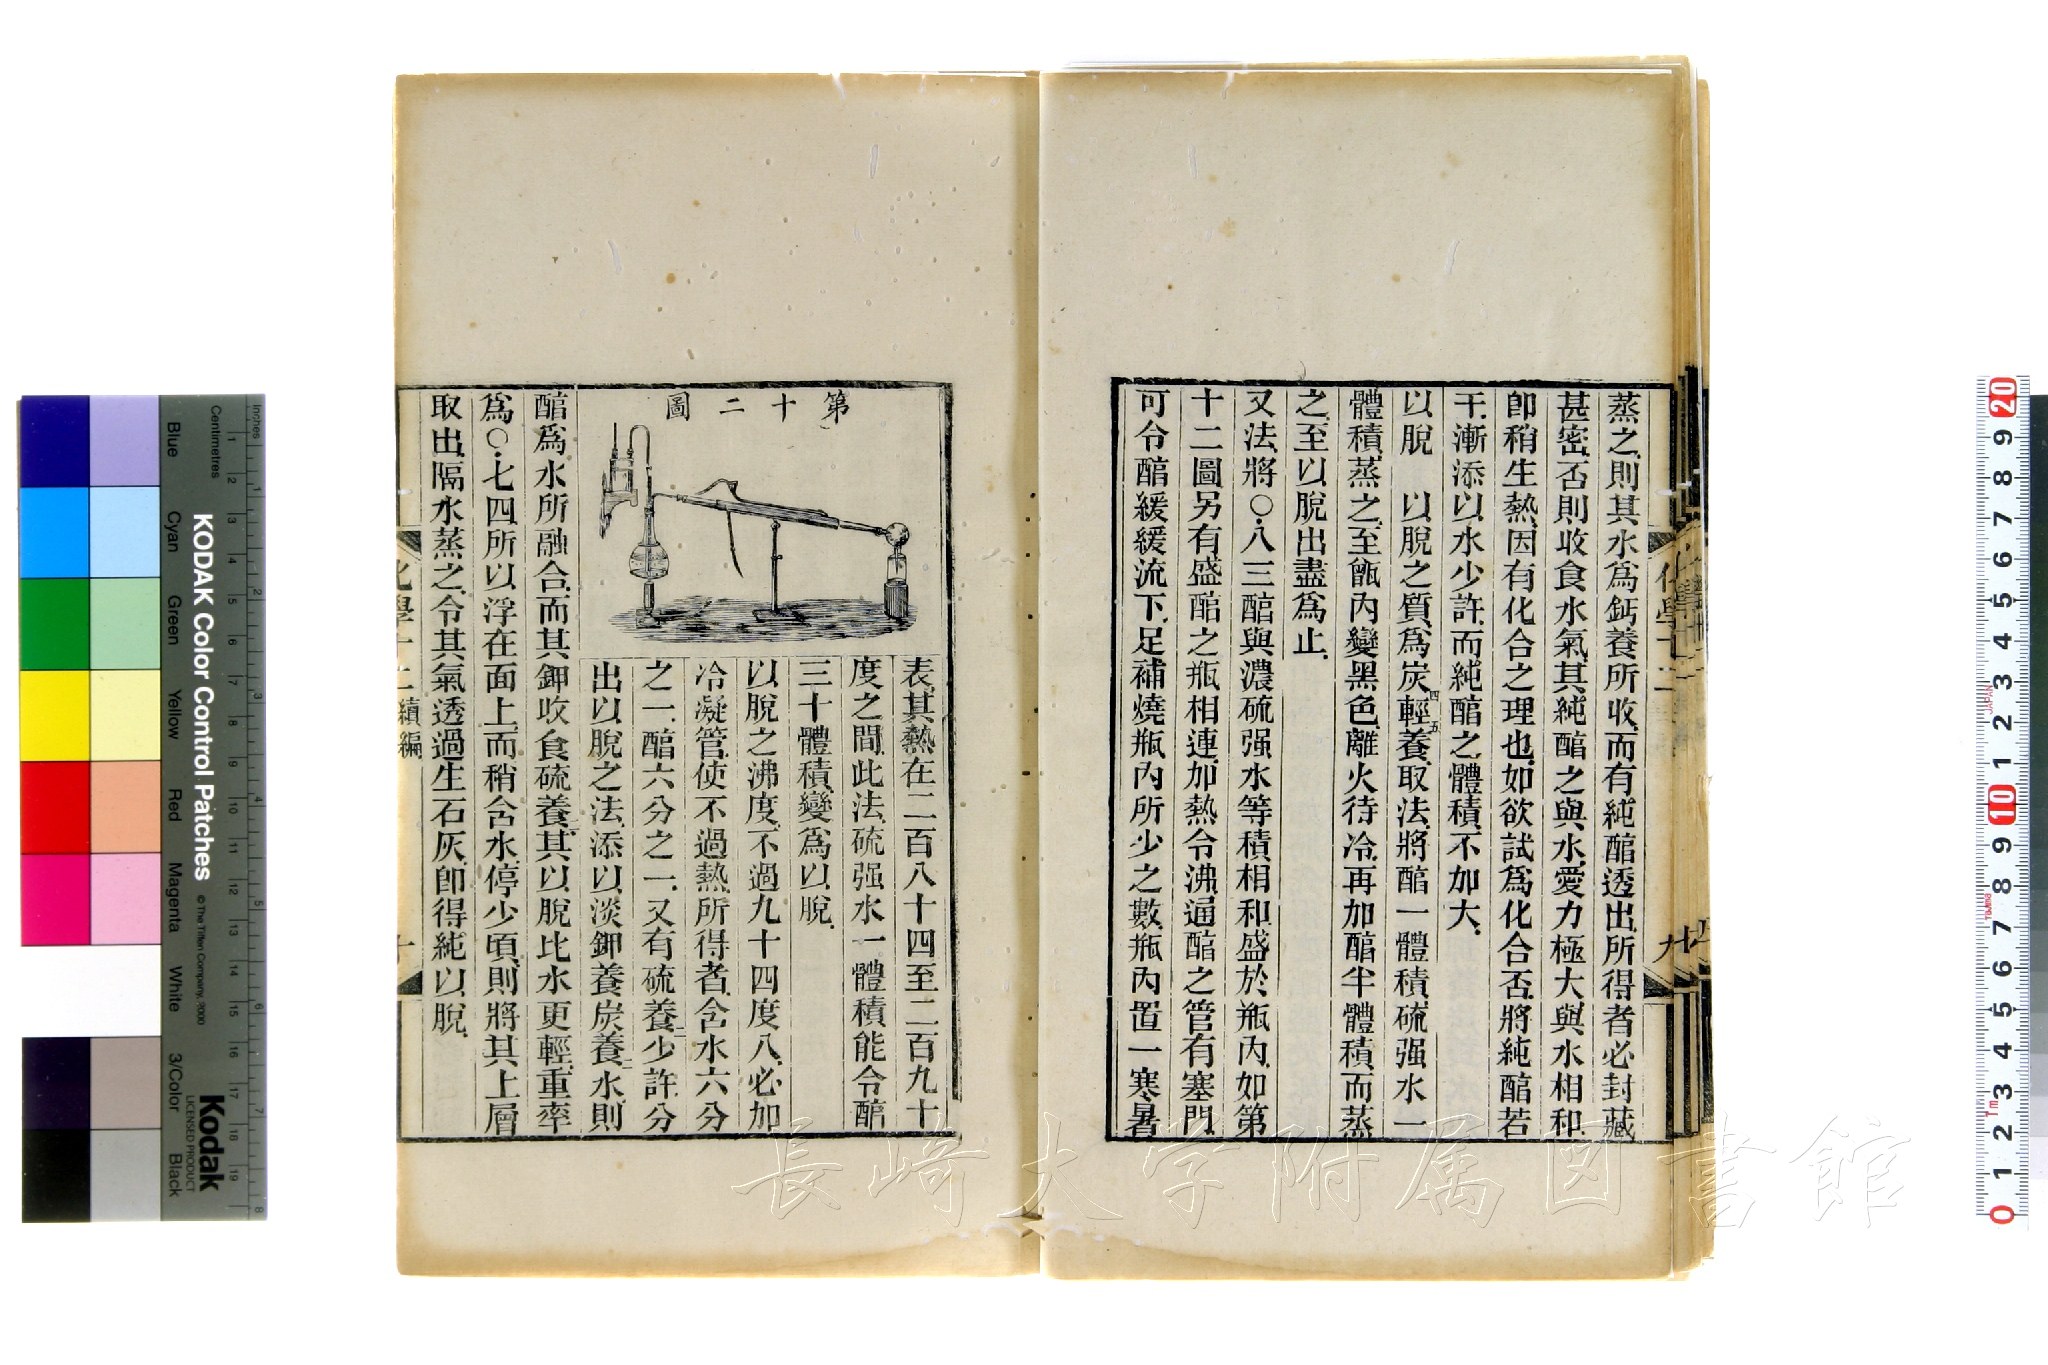 蒸之則其水爲鈣養所收而有純醕透出所得者必封藏
甚密否則收食水氣其純醕之與水愛力極大與水相和
卽稍生熱因有化合之理也如欲試爲化合否將純醕若
干漸添以水少許而純醕之體積不加大
以脫　以脫之質爲炭四輕五養取法將醕一體積硫强水一
體積蒸之至甑內變黑色離火待冷再加醕半體積而蒸
之至以脫出盡爲止
又法將〇八三醕與濃硫强水等積相和盛於瓶內如第
十二圖另有盛醕之瓶相連加熱令沸通醕之管有塞門
可令醕緩緩流下足補燒瓶內所少之數瓶內置一寒暑
第十二圖
表其熱在二百八十四至二百九十
度之間此法硫强水一體積能令醕
三十體積變爲以脫
以脫之沸度不過九十四度八必加
冷凝管使不過熱所得者含水六分
之一醕六分之一又有硫養二少許分
出以脫之法添以淡鉀養炭養二水則
醕爲水所融合而其鉀收食硫養二其以脫比水更輕重率
爲〇七四所以浮在面上而稍含水停少頃則將其上層
取出隔水蒸之令其氣透過生石灰卽得純以脫
化學十二 續編
長崎大学附属図書館
KODAK Color Control Patches
© The Tiffen Company, 2000
Kodak
LICENSED PRODUCT
Centimetres
Inches
Blue
Cyan
Green
Yellow
Red
Magenta
White
3/Color
Black